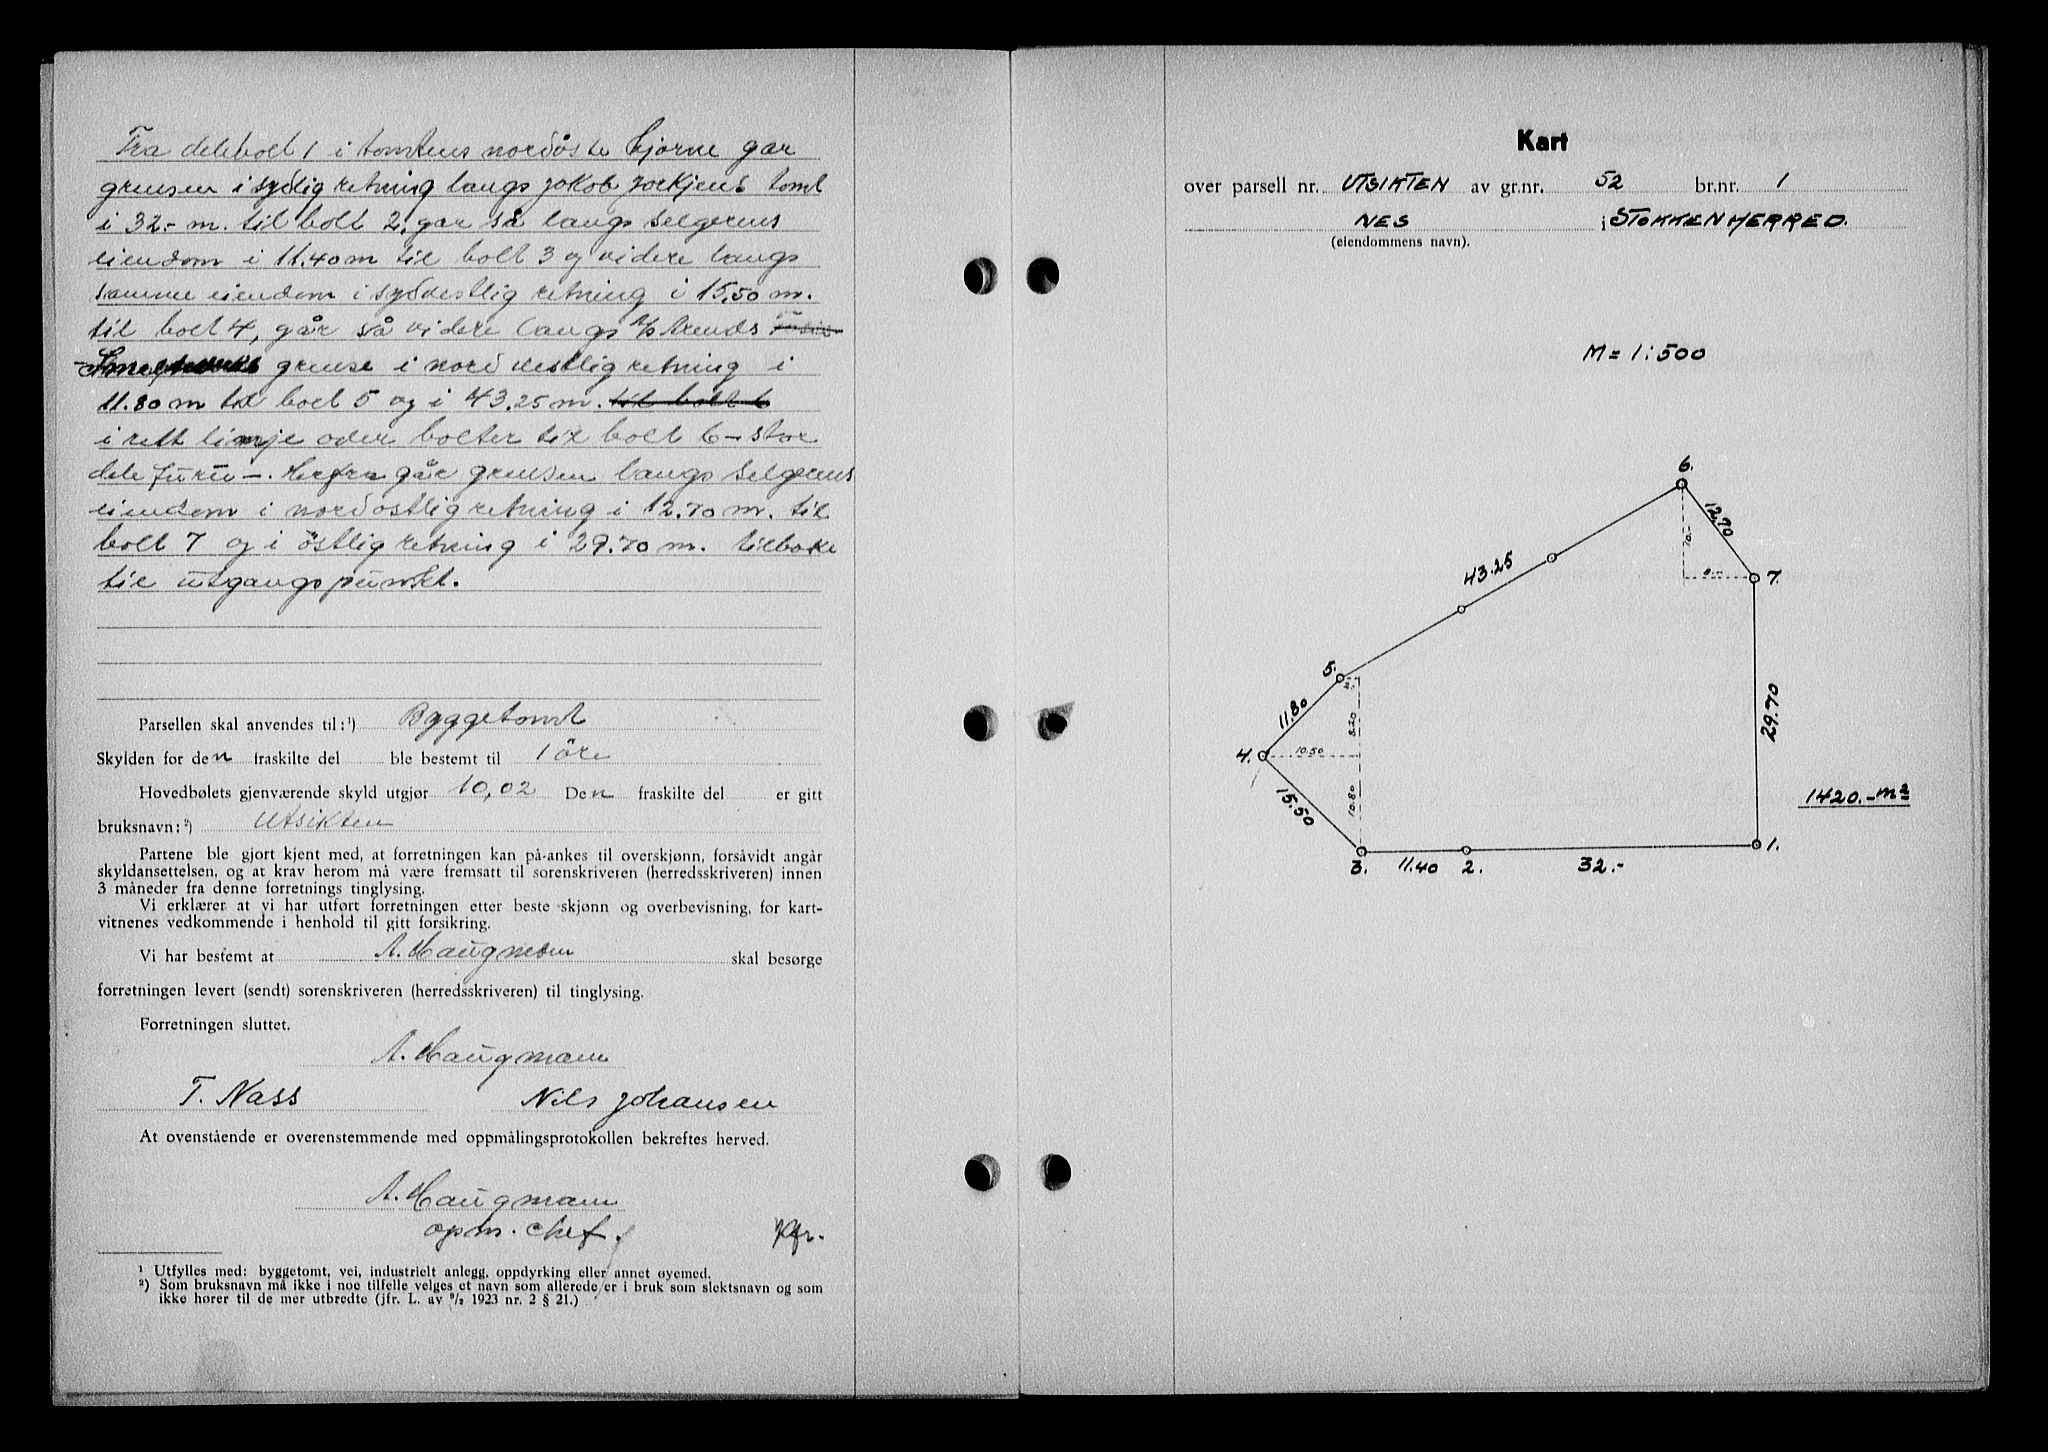 Fra delebolt 1 i tomtens nordöste hjörne går
grensen i sydlig retning langs Jakob tomt
i 32.- m. til bolt 2, går så langs selgerens
eiendom i 11.40 m til bolt 3 og videre langs
samme eiendom i sydvestlig retning i 15.50 m.
til bolt 4, går så videre langs A/S Arends
Smelteverks grense i nordvestlig retning i
11.80 m til bolt 5 og i 43.25 m. til bolt 6
i rett linje över bolter til bolt 6 – stor
dele furu –. Herfra går grensen langs selgerens
eiendom i nordostlig retning i 12.70 m. til
bolt 7 og i östlig retning i 29.70 m. tilbake
til utgangspunkt.
Parsellen skal anvendes til: ¹) Byggetomt
Skylden for den fraskilte del ble bestemt til 1 öre
Hovedbølets gjenværende skyld utgjør 10,02 Den fraskilte del er gitt
bruksnavn: ²) Utsikten
Partene ble gjort kjent med, at forretningen kan på-ankes til overskjønn, forsåvidt angår
skyldansettelsen, og at krav herom må være fremsatt til sorenskriveren (herredsskriveren) innen
3 måneder fra denne forretnings tinglysing.
Vi erklærer at vi har utført forretningen etter beste skjønn og overbevisning, for kart-
vitnenes vedkommende i henhold til gitt forsikring.
Vi har bestemt at A. Haugmann skal besørge
forretningen levert (sendt) sorenskriveren (herredsskriveren) til tinglysing.
Forretningen sluttet.
A. Haugmann
T. Nass Nils Johansen
At ovenstående er overenstemmende med oppmålingsprotokollen bekreftes herved.
A. Haugmann
opm. chef.
¹ Utfylles med: byggetomt, vei, industrielt anlegg, oppdyrking eller annet øyemed.
²) Som bruksnavn må ikke i noe tilfelle velges et navn som allerede er i bruk som slektsnavn og som
ikke hører til de mer utbredte (jfr. L. av ⁹/₂ 1923 nr. 2 § 21.)
Kart
over parsell nr. UTSIKTEN av gr.nr. 52 br.nr. 1
NES i STOKKEN HERRED.
(eiendommens navn).
M = 1:500
6.
12.70
10.-
43.25
8.-
7.
5.
2.-
11.80
8.20
29.70
4.
10.50
15.50
10.80
1420.- m²
1.
3.
11.40
2.
32.-